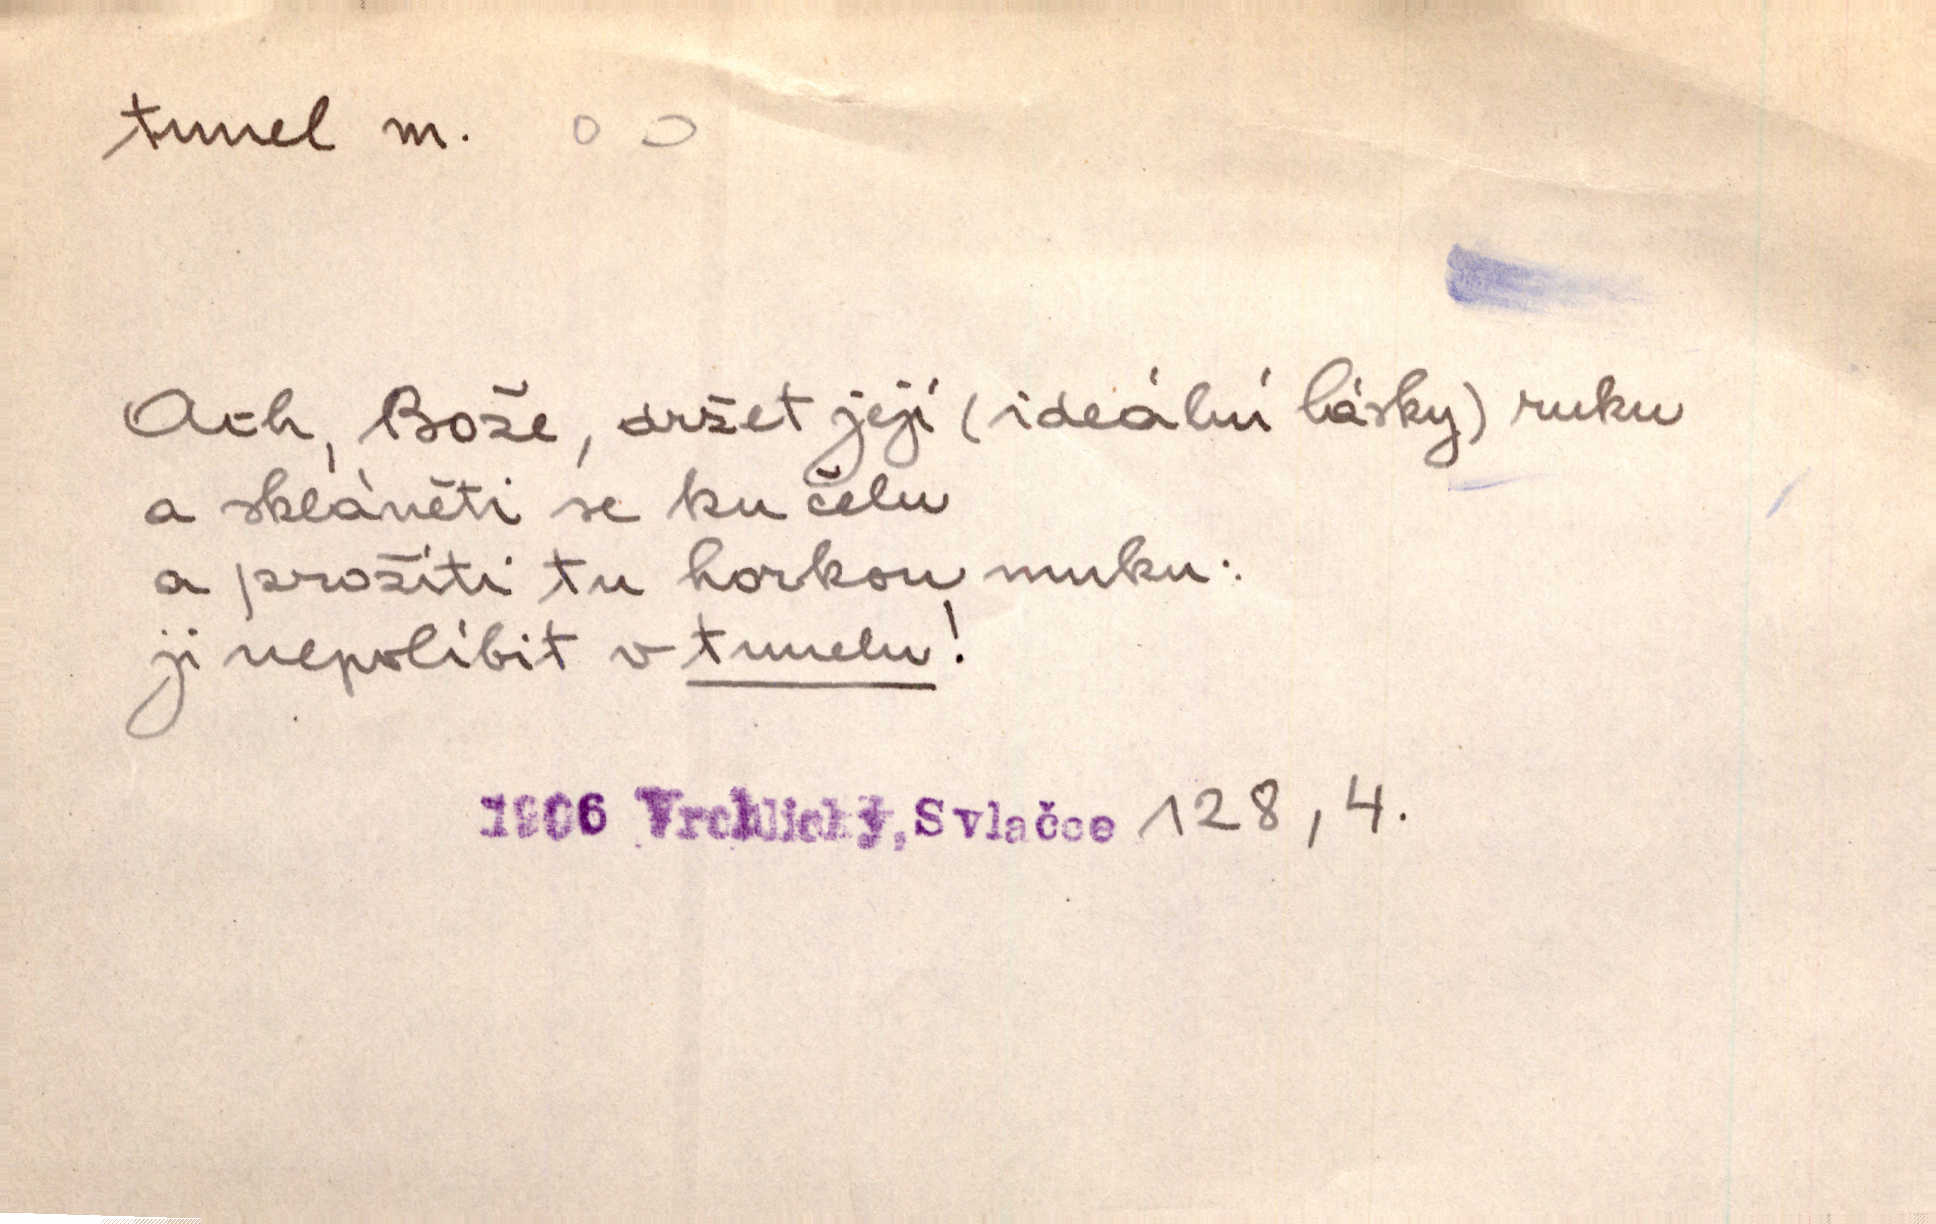 tunel m.
Ach, Bože, držet její (ideální lásky) ruku
a skláněti se ku čelu
a prožíti tu horkou muku:
ji nepolíbit v tunelu!
1906 Vrchlický, Svlačce 128, 4.